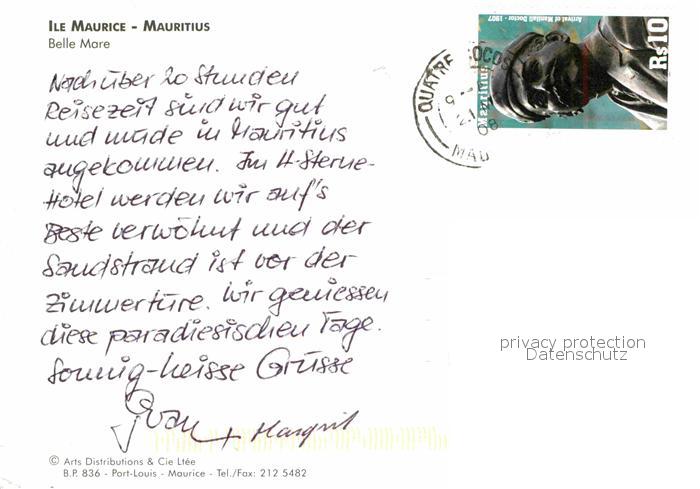 ILE MAURICE - MAURITIUS
Belle Mare
Nach über 20 Stunden
Reisezeit sind wir gut
und müde in Mauritius
angekommen. Im 4-Sterne-
Hotel werden wir auf's
Beste verwöhnt und der
Sandstrand ist vor der
Zimmertüre. Wir geniessen
diese paradiesischen Tage.
Sonnig-heisse Grüsse
+ Margrit
© Arts Distributions & Cie Ltée
B.P. 836 - Port-Louis - Maurice - Tel./Fax: 212 5482
Arrival of Manilall Doctor - 1907
Mauritius
Rs10
QUATRE
MAU
08
privacy protection
Datenschutz